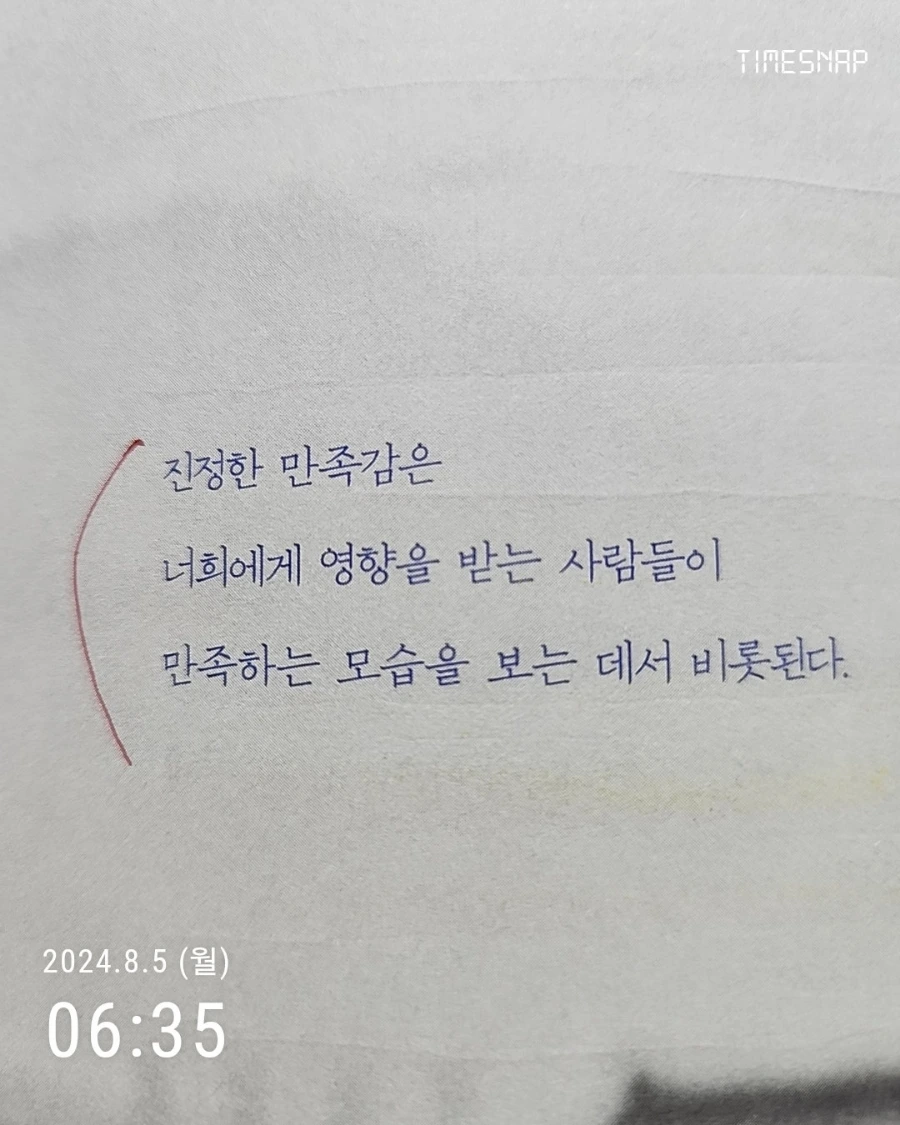 TIMESNAP
진정한 만족감은
너희에게 영향을 받는 사람들이
만족하는 모습을 보는 데서 비롯된다.
2024.8.5 (월)
06:35